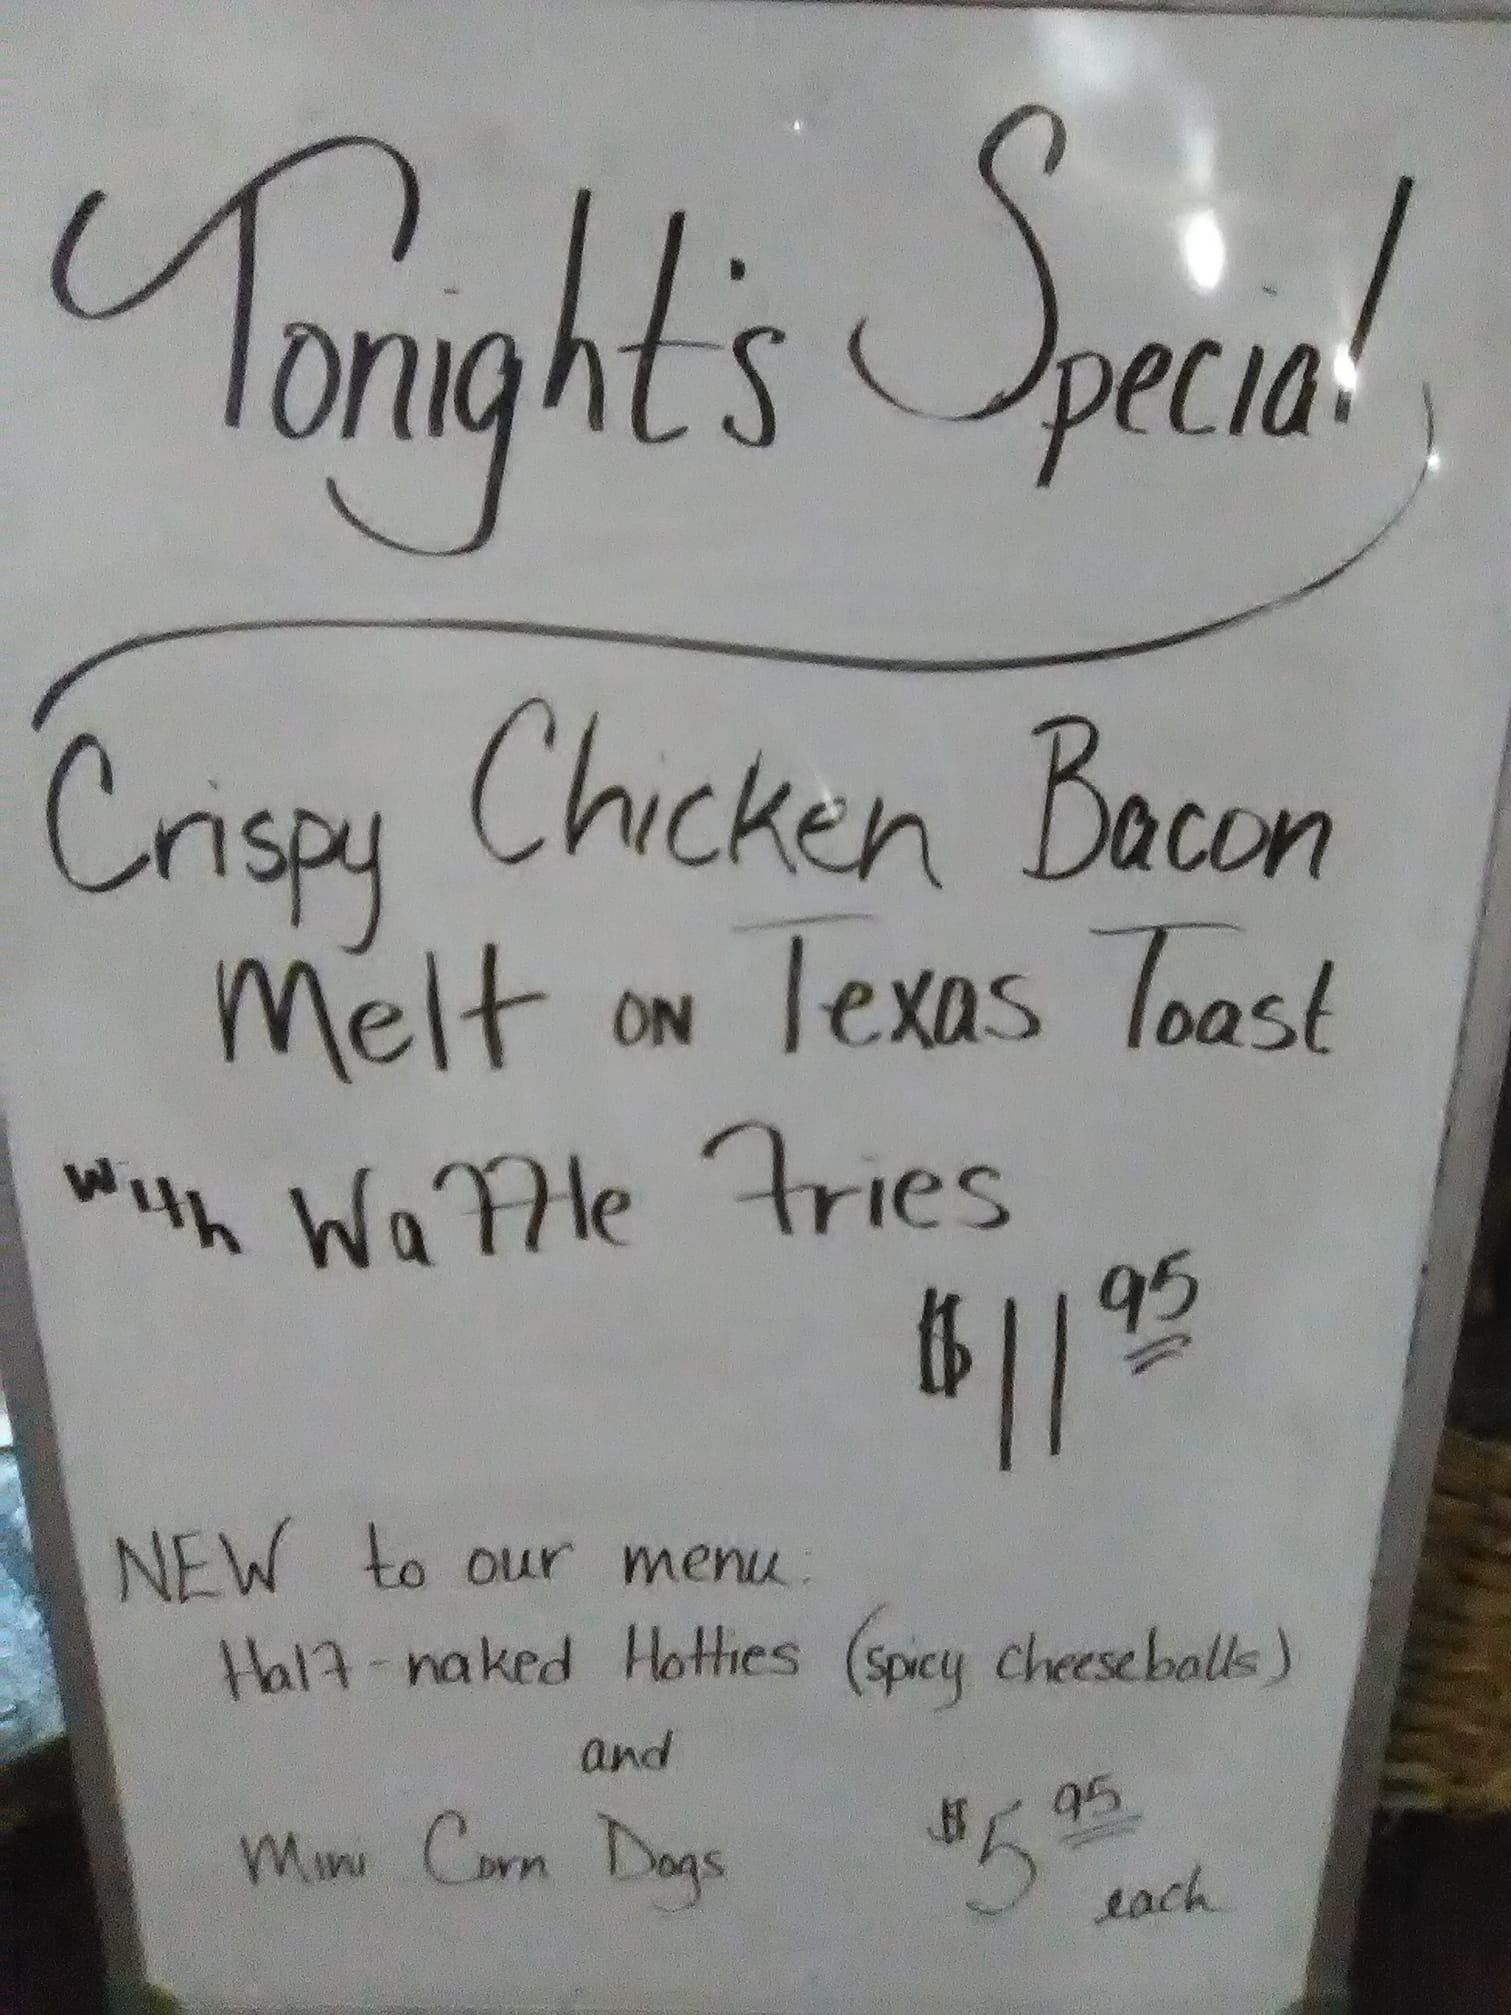 Tonight's Special
Crispy Chicken Bacon
Melt on Texas Toast
with Waffle Fries
$11 95
NEW to our menu:
Half-naked Hotties (spicy cheeseballs)
and
Mini Corn Dogs $5 95
each